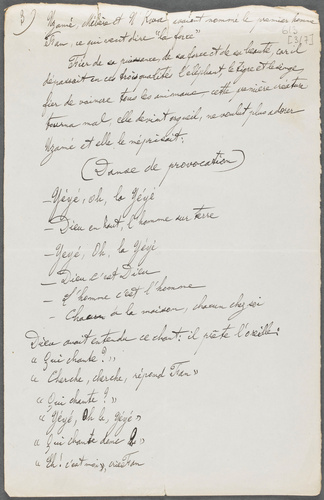 3)
Nzamé, Mébère et N'Kwa avaient nommé le premier homme
Fam, ce qui veut dire "la force"
Fier de sa puissance, de sa force et de sa beauté, car il
dépassait en ces trois qualités l'éléphant, le tigre et le singe,
fier de vaincre tous les animaux cette première créature
tourna mal elle devint orgueil, ne voulut plus adorer
Nzamé et elle le méprisait:
(Danse de provocation)
- Yéyé, oh, la Yéyé
- Dieu en haut, l'homme sur terre
- Yeyé, Oh, la Yéyé
- Dieu c'est Dieu
- L'homme c'est l'homme
- Chacun à la maison, chacun chez soi
Dieu avait entendu ce chant: il prête l'oreille:
"Qui chante?"
"Cherche, cherche, répond Fam"
"Qui chante?"
"Yéyé, Oh la, Yéyé"
"Qui chante donc?"
"Eh! c'est moi", crie Fam